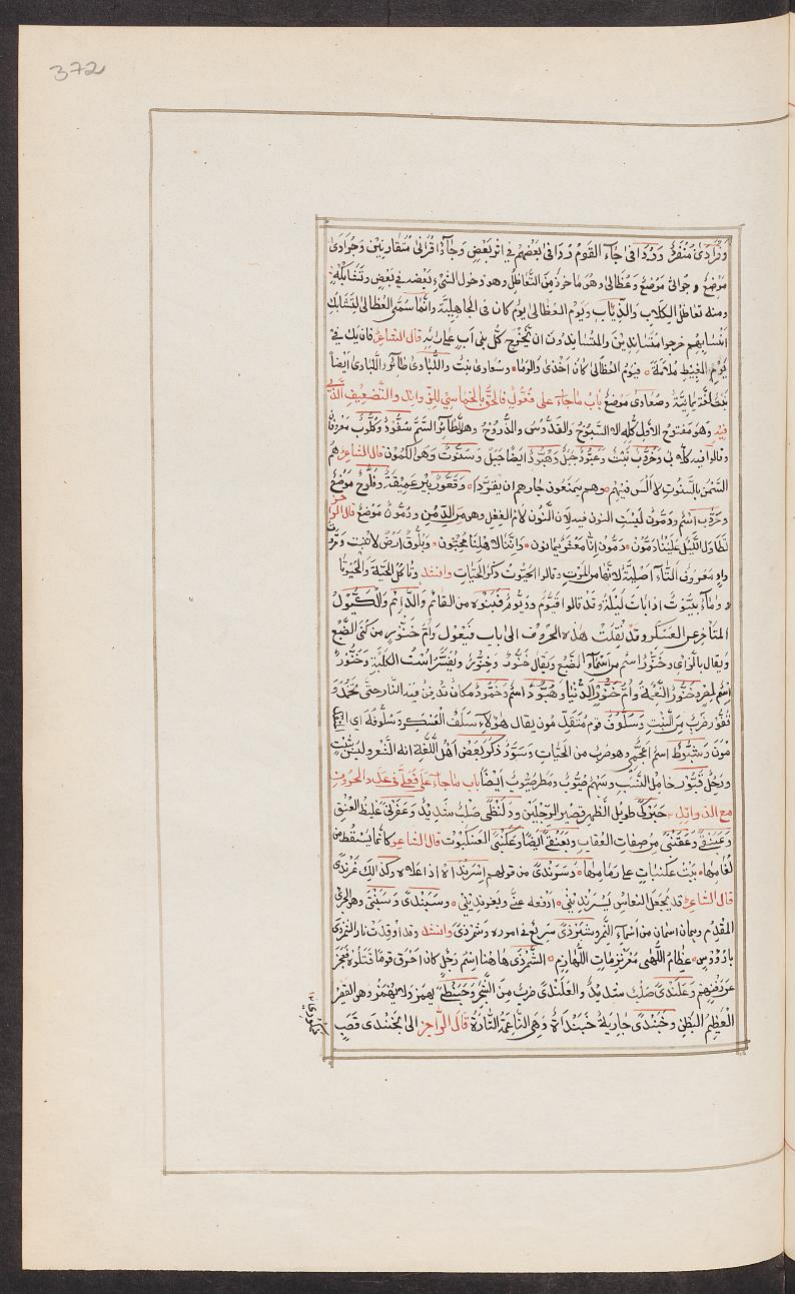 372
وفرادى منفرد وردافى جاء القوم ردافى بعضهم فى اثر بعض وجاؤا قرانى متقاربين وجرادى
موضع وجوالى موضع وعظالى وهو مأخوذ من التعاظل وهو دخول الشىء بعضه فى بعض وتشابكه
ومنه تعاظل الكلاب والذياب ويوم العظالى يوم كان فى الجاهلية وانما سمى العظالى لتشابك
انسابهم خرجوا متساندين والمتساندون ان يخرج كل بنى اب على راية قال الشاعر فان يك فى
يوم الغبيط ملامة فيوم العظالى كان اخزى والوما وسعادى نبت واللبادى طائر واللبادى ايضا
نبت لغة يمانية وصعادى موضع باب ما جاء على فعول فالحق بالخماسى للزوائد والتضعيف الذى
فيه وهو مفتوح الاول كله الا السبوح والقدوس والذروح وهو طائر السم سفود وكلوب معروفان
وقالوا فيه كلاب وخروب نبت وعبود جبل وهبود ايضا جبل وسنوت وهو الكمون قال الشاعر هم
السمن بالسنوت لا الس فيهم وهم يمنعون جارهم ان يقردا وقعور بير عميقة وفلوج موضع
وحدب اسم ودمون ليست النون فيه لان النون لام الفعل وهو من الدمن ودمون موضع قال الراجز
تطاول الليل علينا دمون دمون انا معشر يمانون واننا لاهلنا محبون وبلوق ارض لا تنبت
واد معروف التاء اصلية لانها من المرت وقالوا الحيوت ذكر الحيات وانشد وتاكل الحية والحيوتا
وماء بيوت اذا بات ليلة وقد قالوا قيوم وديوم فبنوه من القائم والدائم والكيول
المتاخر عن العسكر وقد نقلت هذه الحروف الى باب فيعول وام خنور من كنى الضبع
ويقال بالزاى وخنوز اسم من اسماء الضبع ويقال خنوز وخنور ويفسر است الكلبة وخنور
اسم لمصر وخنور النعمة وام خنور الدنيا وهبود اسم وخمود مكان تدفن فيه النار حتى تخمد و
تنور ضرب من النبت وسلوف قوم متقدمون يقال هؤلاء سلف العسكر وسلوفه اى
مون وشبوط اسم اعجمى وهو ضرب من الحيتان وستود ذكر بعض اهل اللغة انه الشعر وليس بثبت
ورجل قبور خامل النسب وسهم صيوب ومطر صيوب ايضا باب ما جاء على فعلى فى عدد الحروف
مع الزوائد حبركى طويل الظهر قصير الرجلين ودلنظى صلب شديد وعفرنى غليظ العنق
وعبنقى وعقنبى من صفات العقاب وبعنقى ايضا وعكنبى العنكبوت قال الشاعر كانما يسقط من
لغامها بيت عكنباة على زمامها وسرندى من قولهم اسرنداه اذا علاه وكذلك غرندى
قال الشاعر قد جعل النعاس يسرندينى ادفعه عنى ويغرندينى وسبندى وسبنتى وهو الجرى
المقدم وهما اسمان من اسماء النمر وشبرذى سريع فى اموره وشمرذى وانشد وقد اوقدت نار الشمرذى
بارؤوس عظام اللحى معرنزمات اللهازم الشمرذى هاهنا اسم رجل كان احرق قوما قتلوه فعجز
عن دفنهم وعلندى صلب شديد والعلندى ضرب من الشجر وحبنطى يهمز ولا يهمز وهو القصير
العظيم البطن وخبندى جارية خبنداة وهى الناعمة التارة قال الراجز الى خبندى قصب